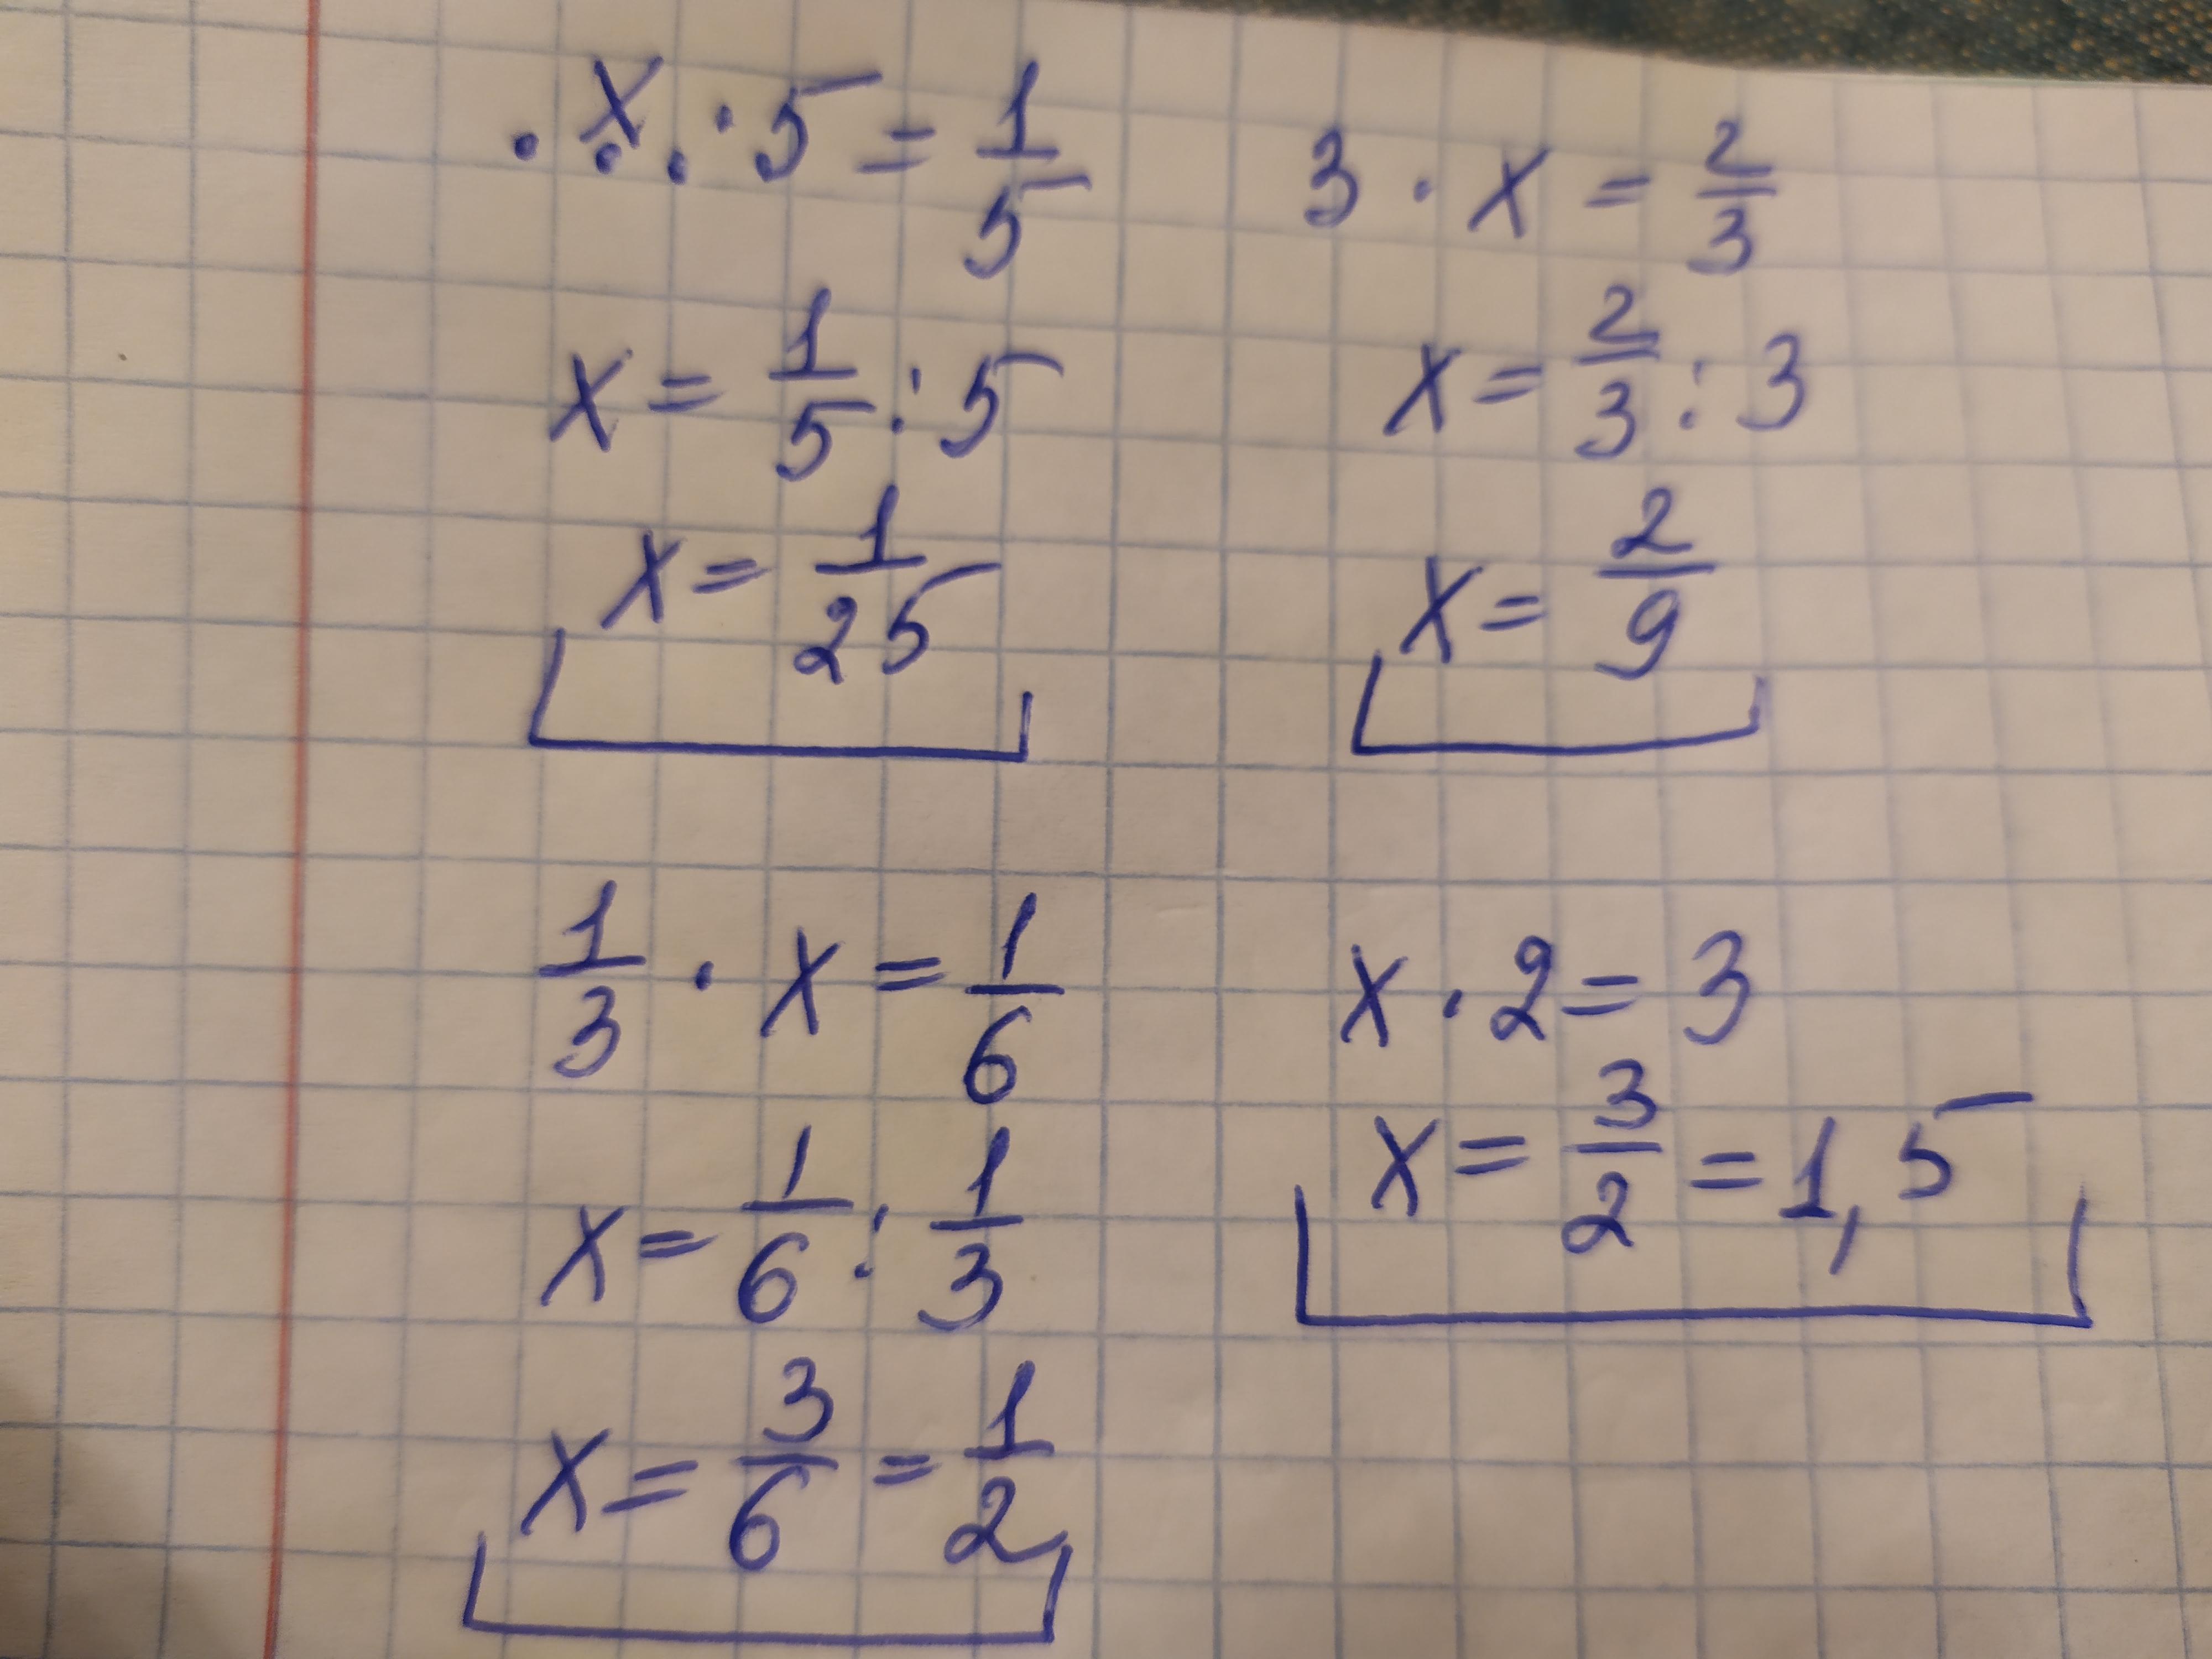 x · 5 = 1/5
x = 1/5 : 5
x = 1/25
3 · x = 2/3
x = 2/3 : 3
x = 2/9
1/3 · x = 1/6
x = 1/6 : 1/3
x = 3/6 = 1/2
x · 2 = 3
x = 3/2 = 1,5